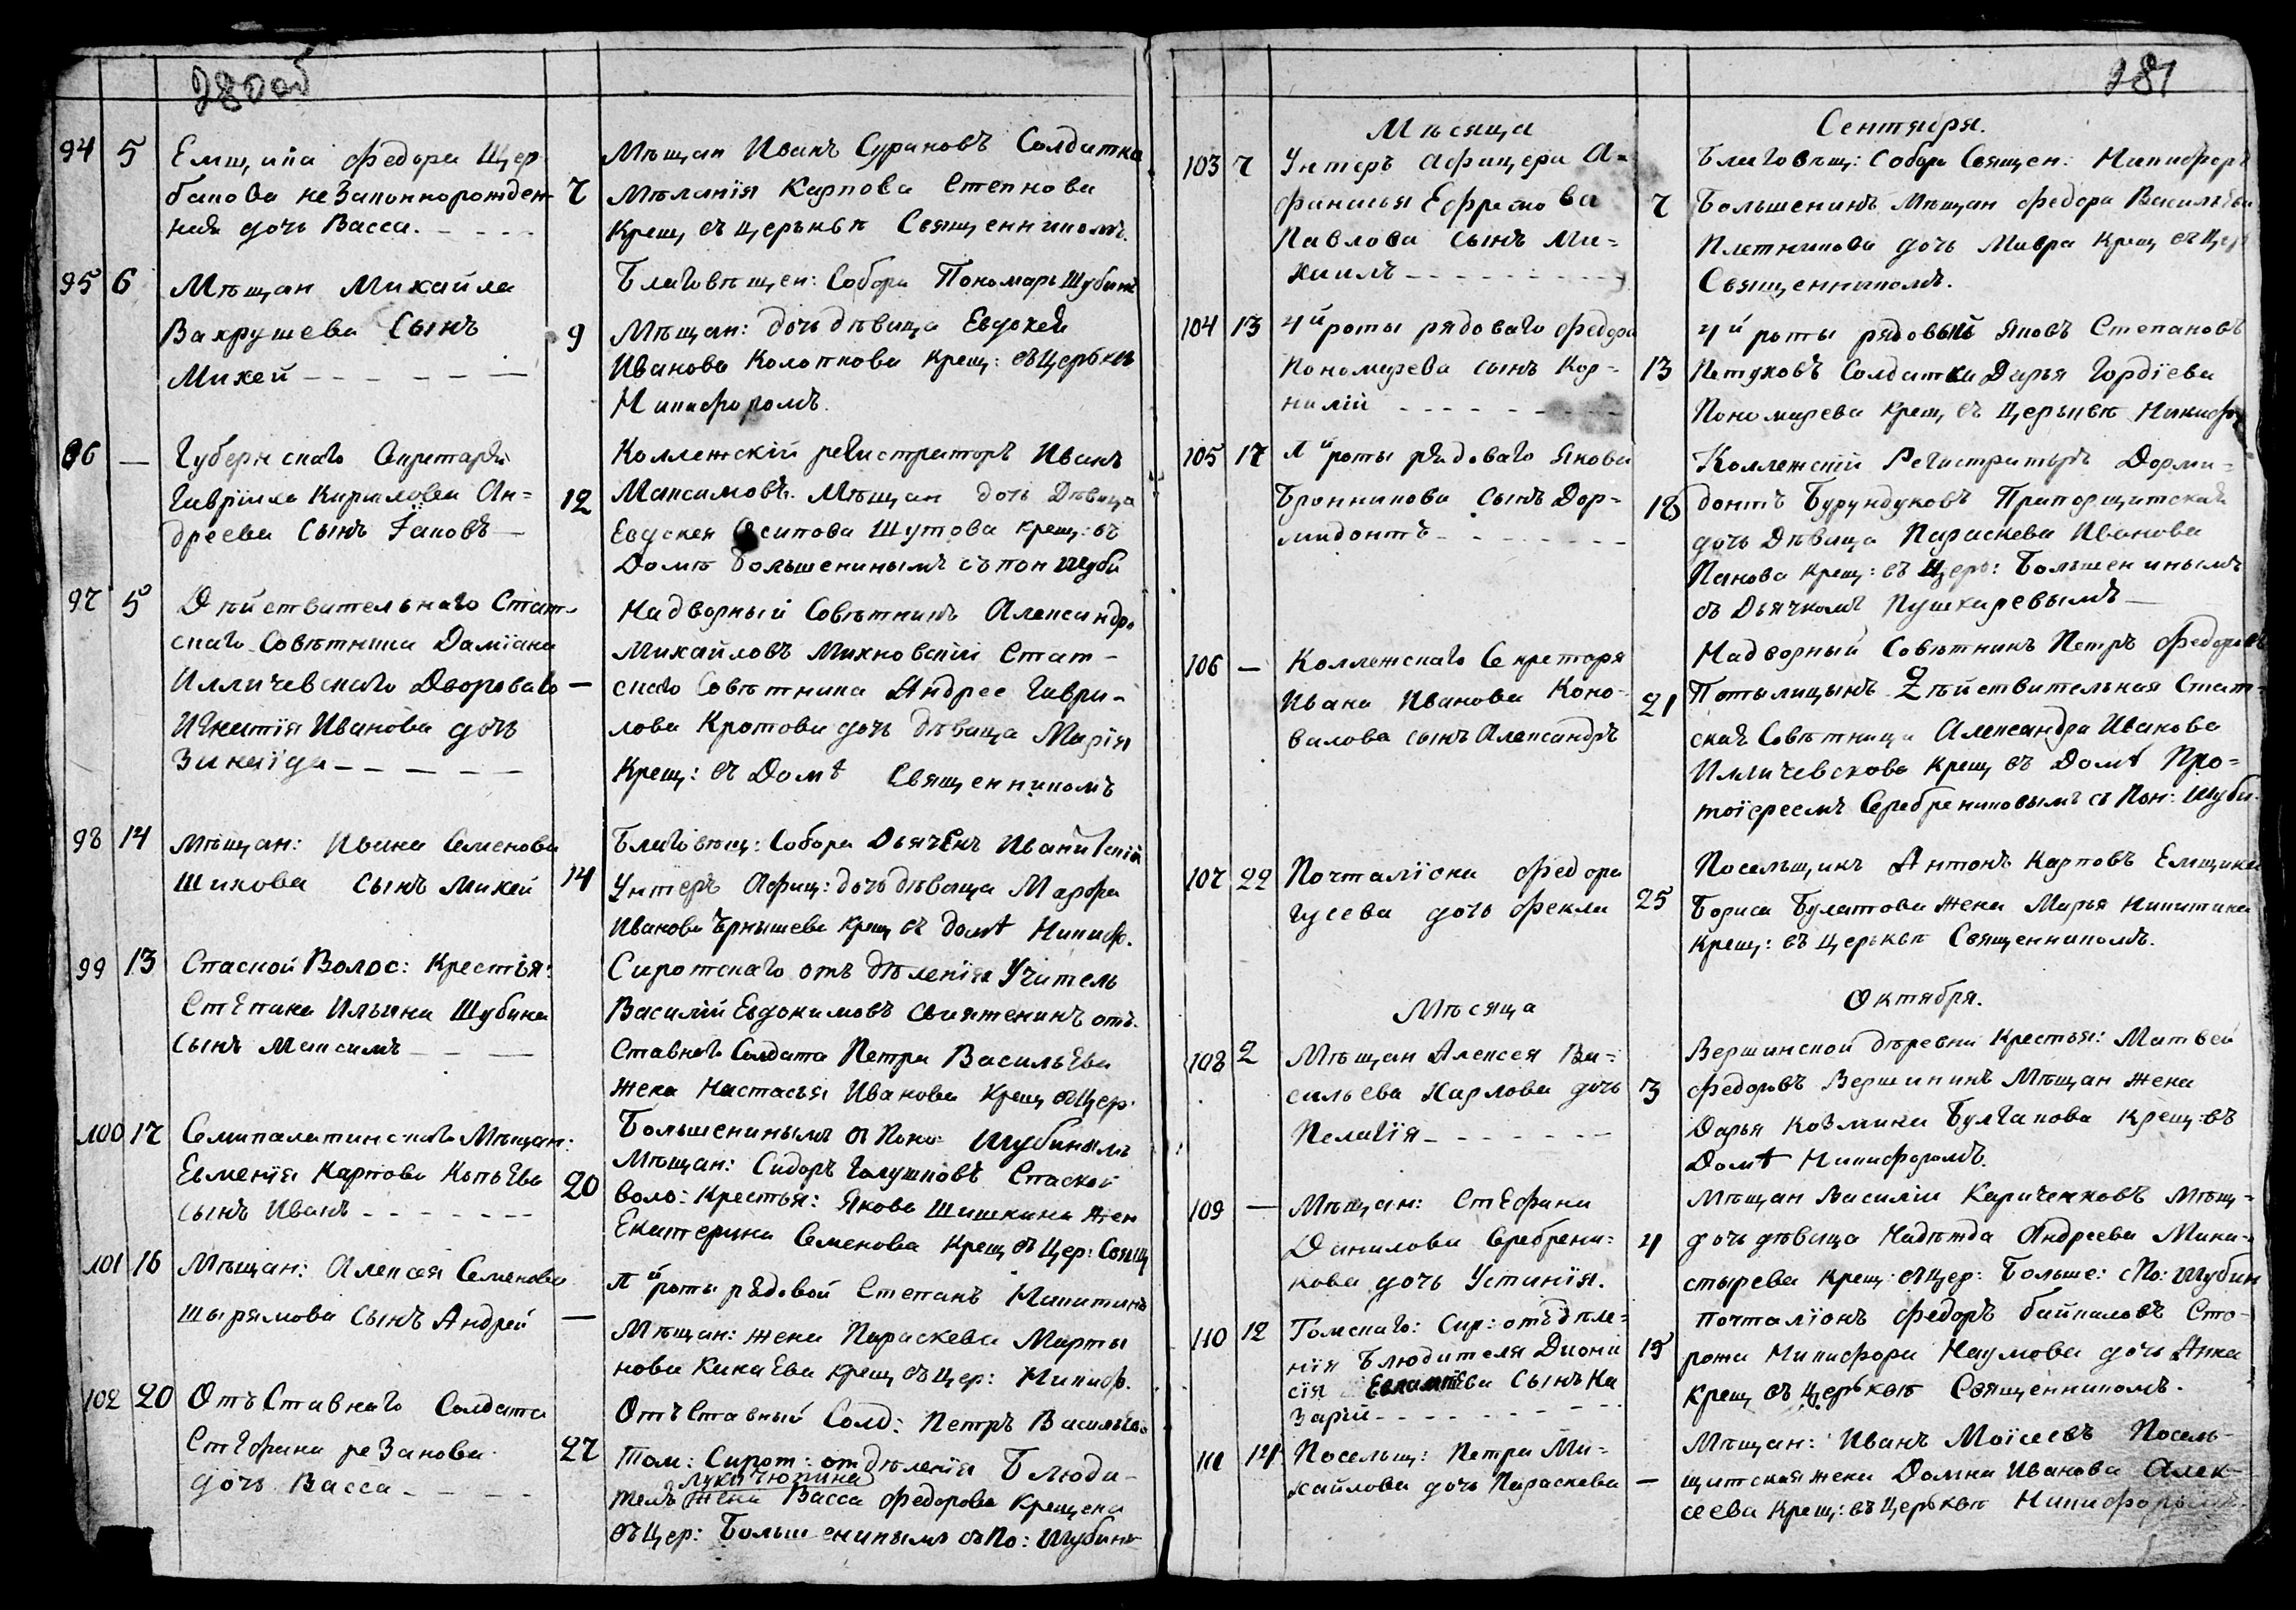 280об
94 5 Емщика Федора Щер
бакова незаконнорожден
ная дочь Васса.
7
Мѣщан Иванъ Сурановъ Солдатка
Мѣланія Карпова Степнова
Крещ въ церьквѣ Священникомъ.
95 6 Мѣщан Михайла
Вахрушева Сынъ
Михей
9
Благовѣщен: Собора Пономарь Шубинъ
Мѣщан: дочь дѣвица Евдокея
Иванова Колопкова Крещ: въ Церьквѣ
Никифоромъ.
96 — Губернскаго Секретаря
Гавріила Кирилова Ан=
дреева Сынъ Іаковъ
12
Коллежскій регистраторъ Иванъ
Максимовъ. Мѣщан дочь Дѣвица
Евдокея Осипова Шутова крещ: въ
Домѣ Большенинымъ съ пон Шуби
97 5 Дѣйствительнаго Стат-
скаго Совѣтника Даміана
Илличевскаго Дворова‹го›
Игнатія Иванова дочь
Зинаїда
—
Надворный Совѣтникъ Александръ
Михайловъ Михновскій Стат-
скаго Совѣтника Андрее Гаври-
лова Кротова дочь дѣвица Марія
Крещ: въ Домѣ Священникомъ
98 14 Мѣщан: Ивана Семенова
Шихова сынъ Михей
14
Благовѣщ: Собора Дьячекъ Иванитскій
Унтеръ Афиц: дочь дѣвица Марфа
Иванова Чрнышева крещ въ домѣ Никиф.
99 13 Спаской Волос: Крестья:
Степана Ильина Шубина
сынъ Максимъ
Сиротскаго отъ дѣленія Учитель
Василій Евдокимовъ Свинтенинъ отъ-
Ставнаго Солдата Петра Васильева
жена Настасья Иванова Крещ въ Цер.
Большенинымъ съ Поно: Шубинымъ
100 17 Семипалатинскаго Мѣщан:
Евменія Карпова Копьева
сынъ Иванъ
20
Мѣщан: Сидоръ Галушковъ Спаской
воло: Крестья: Якова Шишкина жен
Екатерина Семенова Крещ въ Цер: Свящ
101 16 Мѣщан: Алексея Семенова
Шырямова Сынъ Андрей
—
Л й роты рядовой Степанъ Никитинъ
Мѣщан: жена Параскева Марты
нова Кинаева крещ въ Цер: Никиф.
102 20 Отъ Ставнаго Солдата
Стефана резанова
дочь Васса
27
Отъ Ставный Солд: Петръ Васильевъ
Том: Сирот: отдѣленія Блюди-
Лукичюпина
тель жена Васса Федорова Крещена
въ Цер: Большенинымъ съ По: Шубинъ
281
Мѣсяца Сентября.
103 7 Унтеръ Афицера А=
фанасья Ефремова
Павлова сынъ Ми=
хаилъ
7
Благовѣщ: Собора Священ: Никифоръ
Большенинъ Мѣщан Федора Васильева
Плетникова дочь Мавра крещ въ Цер
Священникомъ.
104 13 4 й роты рядоваго Федора
Пономарева сынъ Кор=
нилій
13
4 й роты рядовый Яковъ Степановъ
Петуховъ Солдатка Дарья Гордіева
Пономарева крещ въ Церьквѣ Никифо
105 17 Л й роты рядоваго Якова
Бронникова сынъ Дор-
мидонтъ
18
Коллежскій Регистраторъ Дорми=
донтъ Бурундуковъ Прапорщитская
дочь Дѣвица Параскева Иванова
Панова крещ: въ Церь: Большенинымъ
съ Дьячкомъ Пушкаревымъ
106 — Коллежскаго Секретаря
Ивана Иванова Коно-
валова сынъ Александръ
21
Надворный Совѣтникъ Петръ Федоровъ
Потылицынъ Дѣйствительная Стат-
ская Совѣтница Александра Иванова
Илличевскова крещ въ Домѣ Про=
тоіереемъ Серебрениковымъ съ Пон: Шуби.
107 22 Почталіона Федора
Гусева дочь Фекла
25
Посельщикъ Антонъ Карповъ Емщика
Бориса Булатова жена Марья Никитина
крещ: въ церьквѣ Священникомъ.
Мѣсяца Октября.
108 2 Мѣщан Алексея Ва-
сильева Карлова дочь
Пелагія
3
Вершинской деревни Крестья: Матвей
Федоровъ Вершининъ Мѣщан жена
Дарья Козмина Булгакова Крещ: въ
Домѣ Никифоромъ.
109 — Мѣщан: Стефана
Данилова Серебрени=
кова дочь Устинія.
4
Мѣщан Василій Кариченковъ Мѣщ-
дочь дѣвица Надежда Андреева Мана-
стырева крещ: въ Цер: Больше: с По: Шубин
110 12 Томскаго: Сир: отъдѣле=
нія Блюдителя Диони
сія Евлампіева Сынъ На
зарій
15
Почталіонъ Федоръ байкаловъ Сто-
рожа Никифора Наумова дочь Анна
крещ въ Церьквѣ Священникомъ.
111 14 Посельщ: Петра Ми=
хайлова дочь Параскева
—
Мѣщан: Иванъ Моисеевъ Посель-
щитская жена Домна Иванова Алек-
сеева крещ: въ Церьквѣ Никифоромъ.